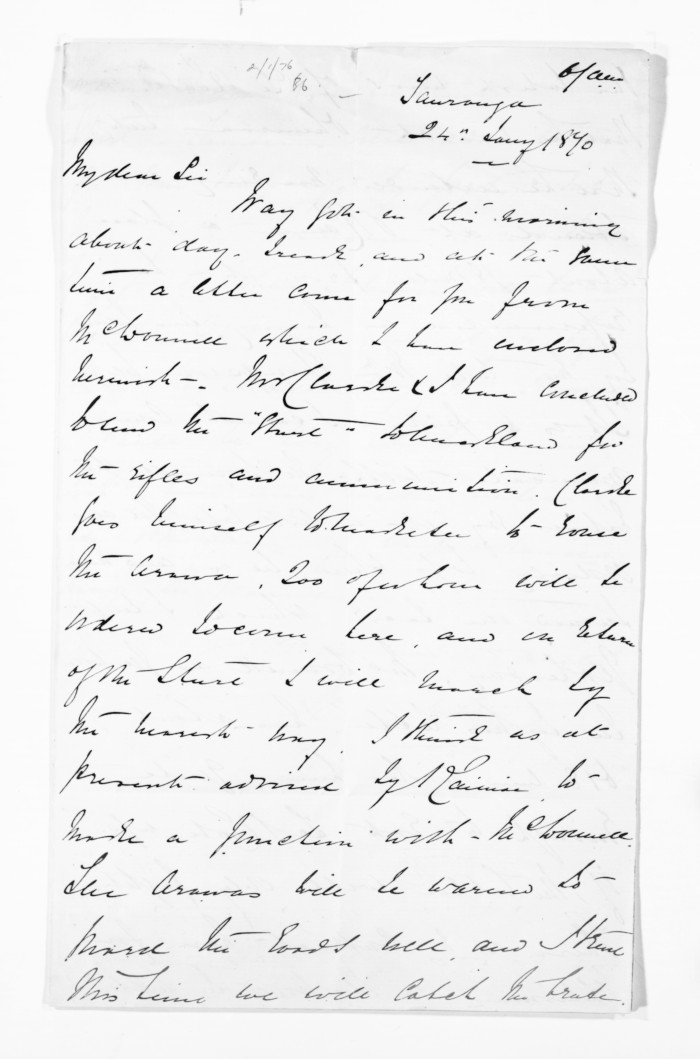 2/1/76
86
6/am
Tauranga
24th Jany 1870
My dear Sir
Way got in this morning
about day-break, and at the same
time a letter came for you from
McDonnell which I have enclosed
herewith. Mr Clarke & I have concluded
to send the "Sturt" to Auckland for
the rifles and ammunition. Clarke
goes himself to Maketu to rouse
the Arawa, 200 of whom will be
ordered to come here, and on return
of the Sturt I will march by
the nearest way. I think as at
present advised by Kaimai to
make a junction with McDonnell.
The Arawas will be warned to
guard the roads well, and I trust
this time we will catch the brute.